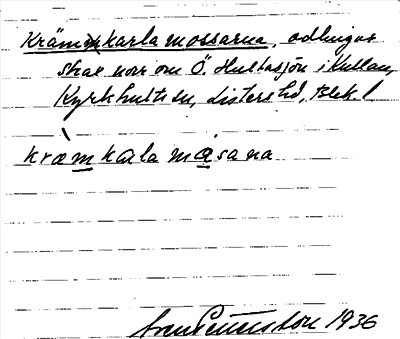 Krämmkarlamossarna, odlingar
strax norr om Ö. Hultasjön i Kullan,
Kyrkhults sn, Listers hd, Blek. l.
kræmkarlamåsana
Sven Benson 1936